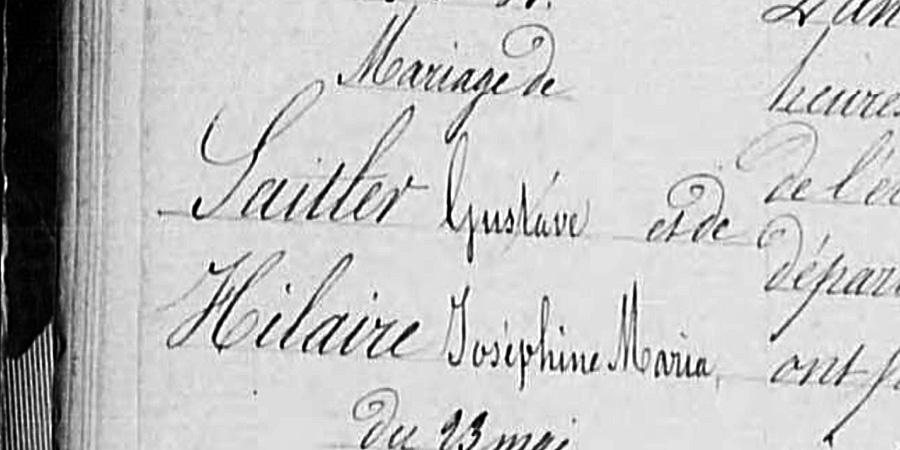 Mariage de
Saitter Gustave et de
Hilaire Joséphine Maria,
du 23 mai
heures
de l'é
dépar
ont